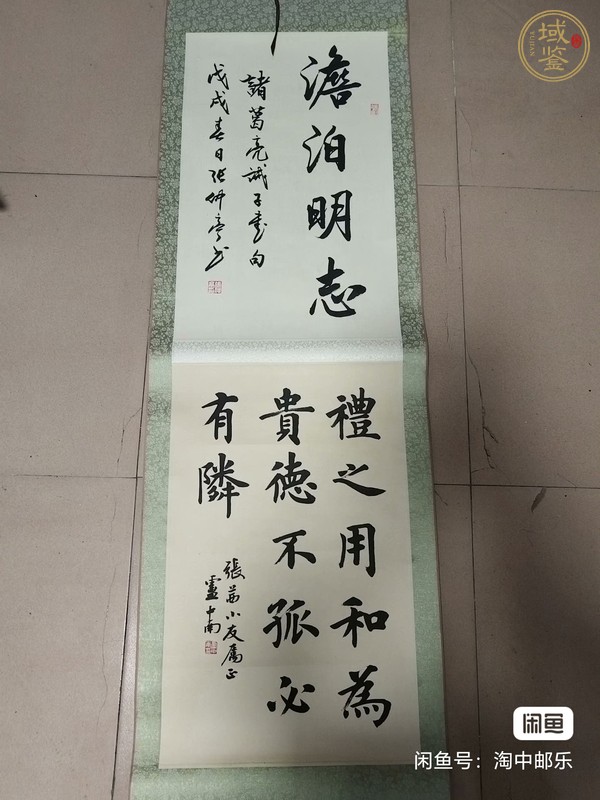 澹泊明志
諸葛亮誡子書句
戊戌春日張妍亭書
禮之用和為
貴德不孤必
有隣
張茜小友屬正
盧中南
域鉴
YUJIAN
闲鱼
闲鱼号：淘中邮乐